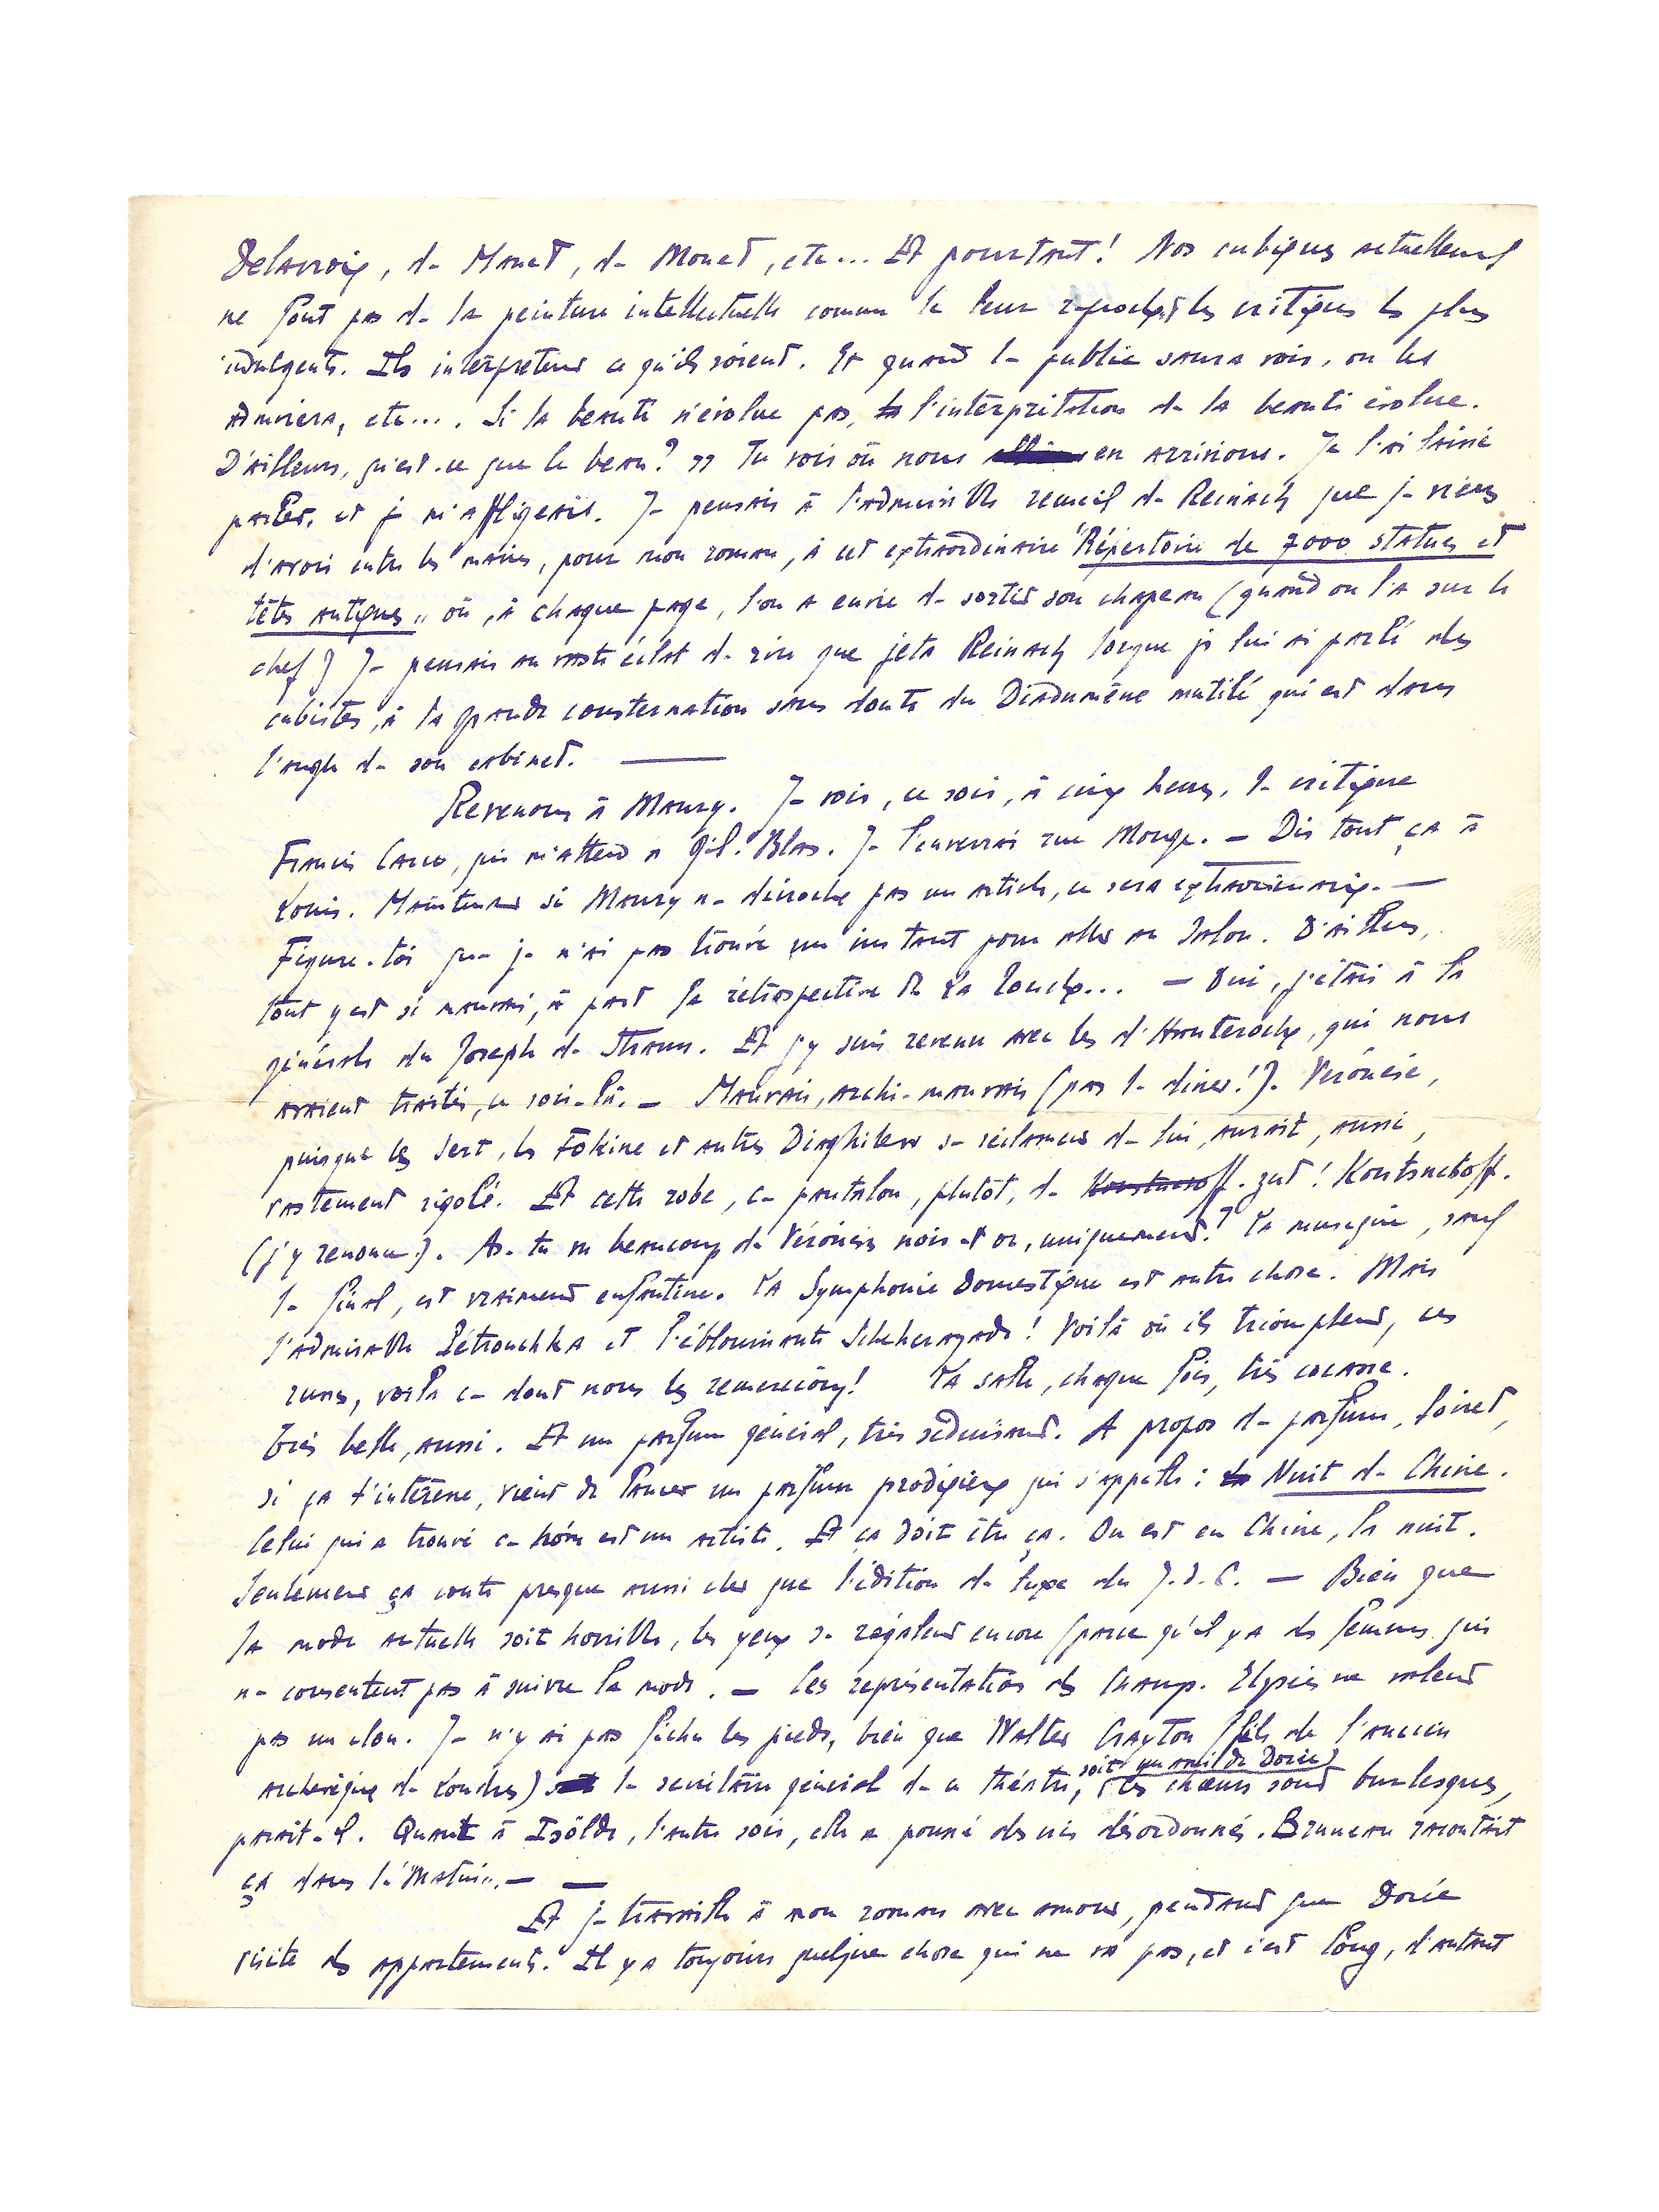 Delacroix, de Manet, de Monet, etc... Et pourtant ! Nos cubiques actuellement
ne font pas de la peinture intellectuelle comme le leur reprochent les critiques les plus
indulgents. Ils interprètent ce qu'ils voient. Et quand le public saura voir, on les
admirera, etc.... Si la beauté n'évolue pas, l'interprétation de la beauté évolue.
D'ailleurs, qu'est-ce que le beau ? » Tu vois où nous en arrivions. Je l'ai laissé
parler, et je m'affligeais. Je pensais à l'admirable recueil de Reinach que je viens
d'avoir entre les mains, pour mon roman, à cet extraordinaire "Répertoire de 7000 statues et
têtes antiques" où, à chaque page, l'on a envie de sortir son chapeau (quand on l'a sur le
chef) Je pensais au vaste éclat de rire que jeta Reinach lorsque je lui ai parlé des
cubistes, à la grande consternation sans doute du Diadumène mutilé qui est dans
l'angle de son cabinet. —
Revenons à Maury. Je vois, ce soir, à cinq heures, le critique
Francis Carco, qui m'attend a Gil-Blas. Je l'enverrai rue Monge. — Dis tout ça à
Louis. Maintenant si Maury ne décroche pas un article, ce sera extraordinaire. —
Figure-toi que je n'ai pas trouvé un instant pour aller au Salon. D'ailleurs,
tout y est si mauvais, à part la rétrospective de La Touche... — Oui, j'étais à la
générale du Joseph de Strauss. Et j'y suis revenu avec les d'Hauteroche, qui nous
avaient traités, ce soir-là. — Mauvais, archi-mauvais (pas le dîner !). Véronèse,
puisque les Sert, les Fokine et autres Diaghilew se réclament de lui, aurait, aussi,
vastement rigolé. Et cette robe, ce pantalon, plutôt, de Koustnesoff. zut ! Koutsnetsoff.
(j'y renonce). As-tu vu beaucoup de Véronèses noir et or, uniquement ? La musique, sauf
le final, est vraiment enfantine. La Symphonie Domestique est autre chose. Mais
l'admirable Pétrouchka et l'éblouissante Scheherazade ! Voilà où ils triomphent, ces
russes, voilà ce dont nous les remercions ! La salle, chaque fois, très cocasse.
Très belle, aussi. Et un parfum général, très séduisant. A propos de parfum, Poiret,
si ça t'intéresse, vient de lancer un parfum prodigieux qui s'appelle : la Nuit de Chine.
Celui qui a trouvé ce nom est un artiste. Et ça doit être ça. On est en Chine, la nuit.
Seulement ça coute presque aussi cher que l'édition de luxe du J.d.C. — Bien que
la mode actuelle soit horrible, les yeux se régalent encore (parce qu'il y a des femmes qui
ne consentent pas à suivre la mode. — Les représentations des Champs-Elysées ne valent
pas un clou. Je n'y ai pas fichu les pieds, bien que Walter Crayton (fils de l'ancien
archevêque de Londres)
soit un ami de Dorée)
le secrétaire général de ce théâtre, (les chœurs sont burlesques,
parait-il. Quant à Isolde, l'autre soir, elle a poussé des cris désordonnés. Bruneau racontait
ça dans le "Matin". — —
Et je travaille à mon roman avec amour, pendant que Dorée
visite des appartements. Il y a toujours quelque chose qui ne va pas, et c'est long, d'autant